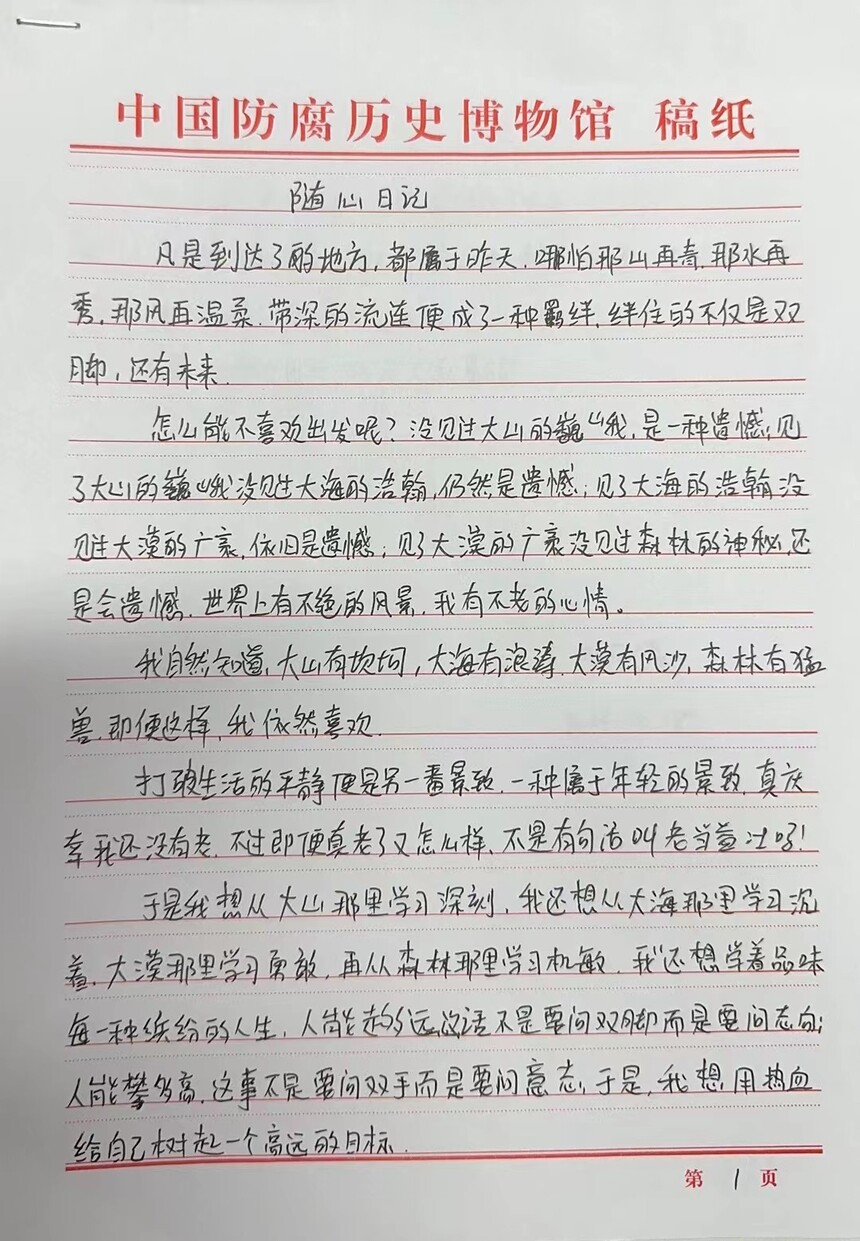 中国防腐历史博物馆 稿纸
随心日记
凡是到达了的地方,都属于昨天,哪怕那山再奇,那水再
秀,那风再温柔,带深的流连便成了一种羁绊,绊住的不仅是双
脚,还有未来.
怎么能不喜欢出发呢?没见过大山的巍峨,是一种遗憾;见
了大山的巍峨没见过大海的浩瀚,仍然是遗憾;见了大海的浩瀚没
见过大漠的广袤,依旧是遗憾;见了大漠的广袤没见过森林的神秘,还
是会遗憾.世界上有不绝的风景,我有不老的心情。
我自然知道,大山有坎坷,大海有浪涛,大漠有风沙,森林有猛
兽.即便这样,我依然喜欢.
打破生活的平静便是另一番景致,一种属于年轻的景致.真庆
幸我还没有老.不过即便真老了又怎么样,不是有句话叫老当益壮吗!
于是我想从大山那里学习深刻,我还想从大海那里学习沉
着,大漠那里学习勇敢,再从森林那里学习机敏.我还想学着品味
每一种缤纷的人生,人能走多远这话不是要问双脚而是要问志向;
人能攀多高,这事不是要问双手而是要问意志,于是,我想用热血
给自己树起一个高远的目标.
第 1 页